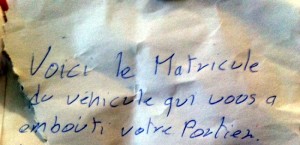 Voici le Matricule
du véhicule qui vous a
embouti votre Portier.